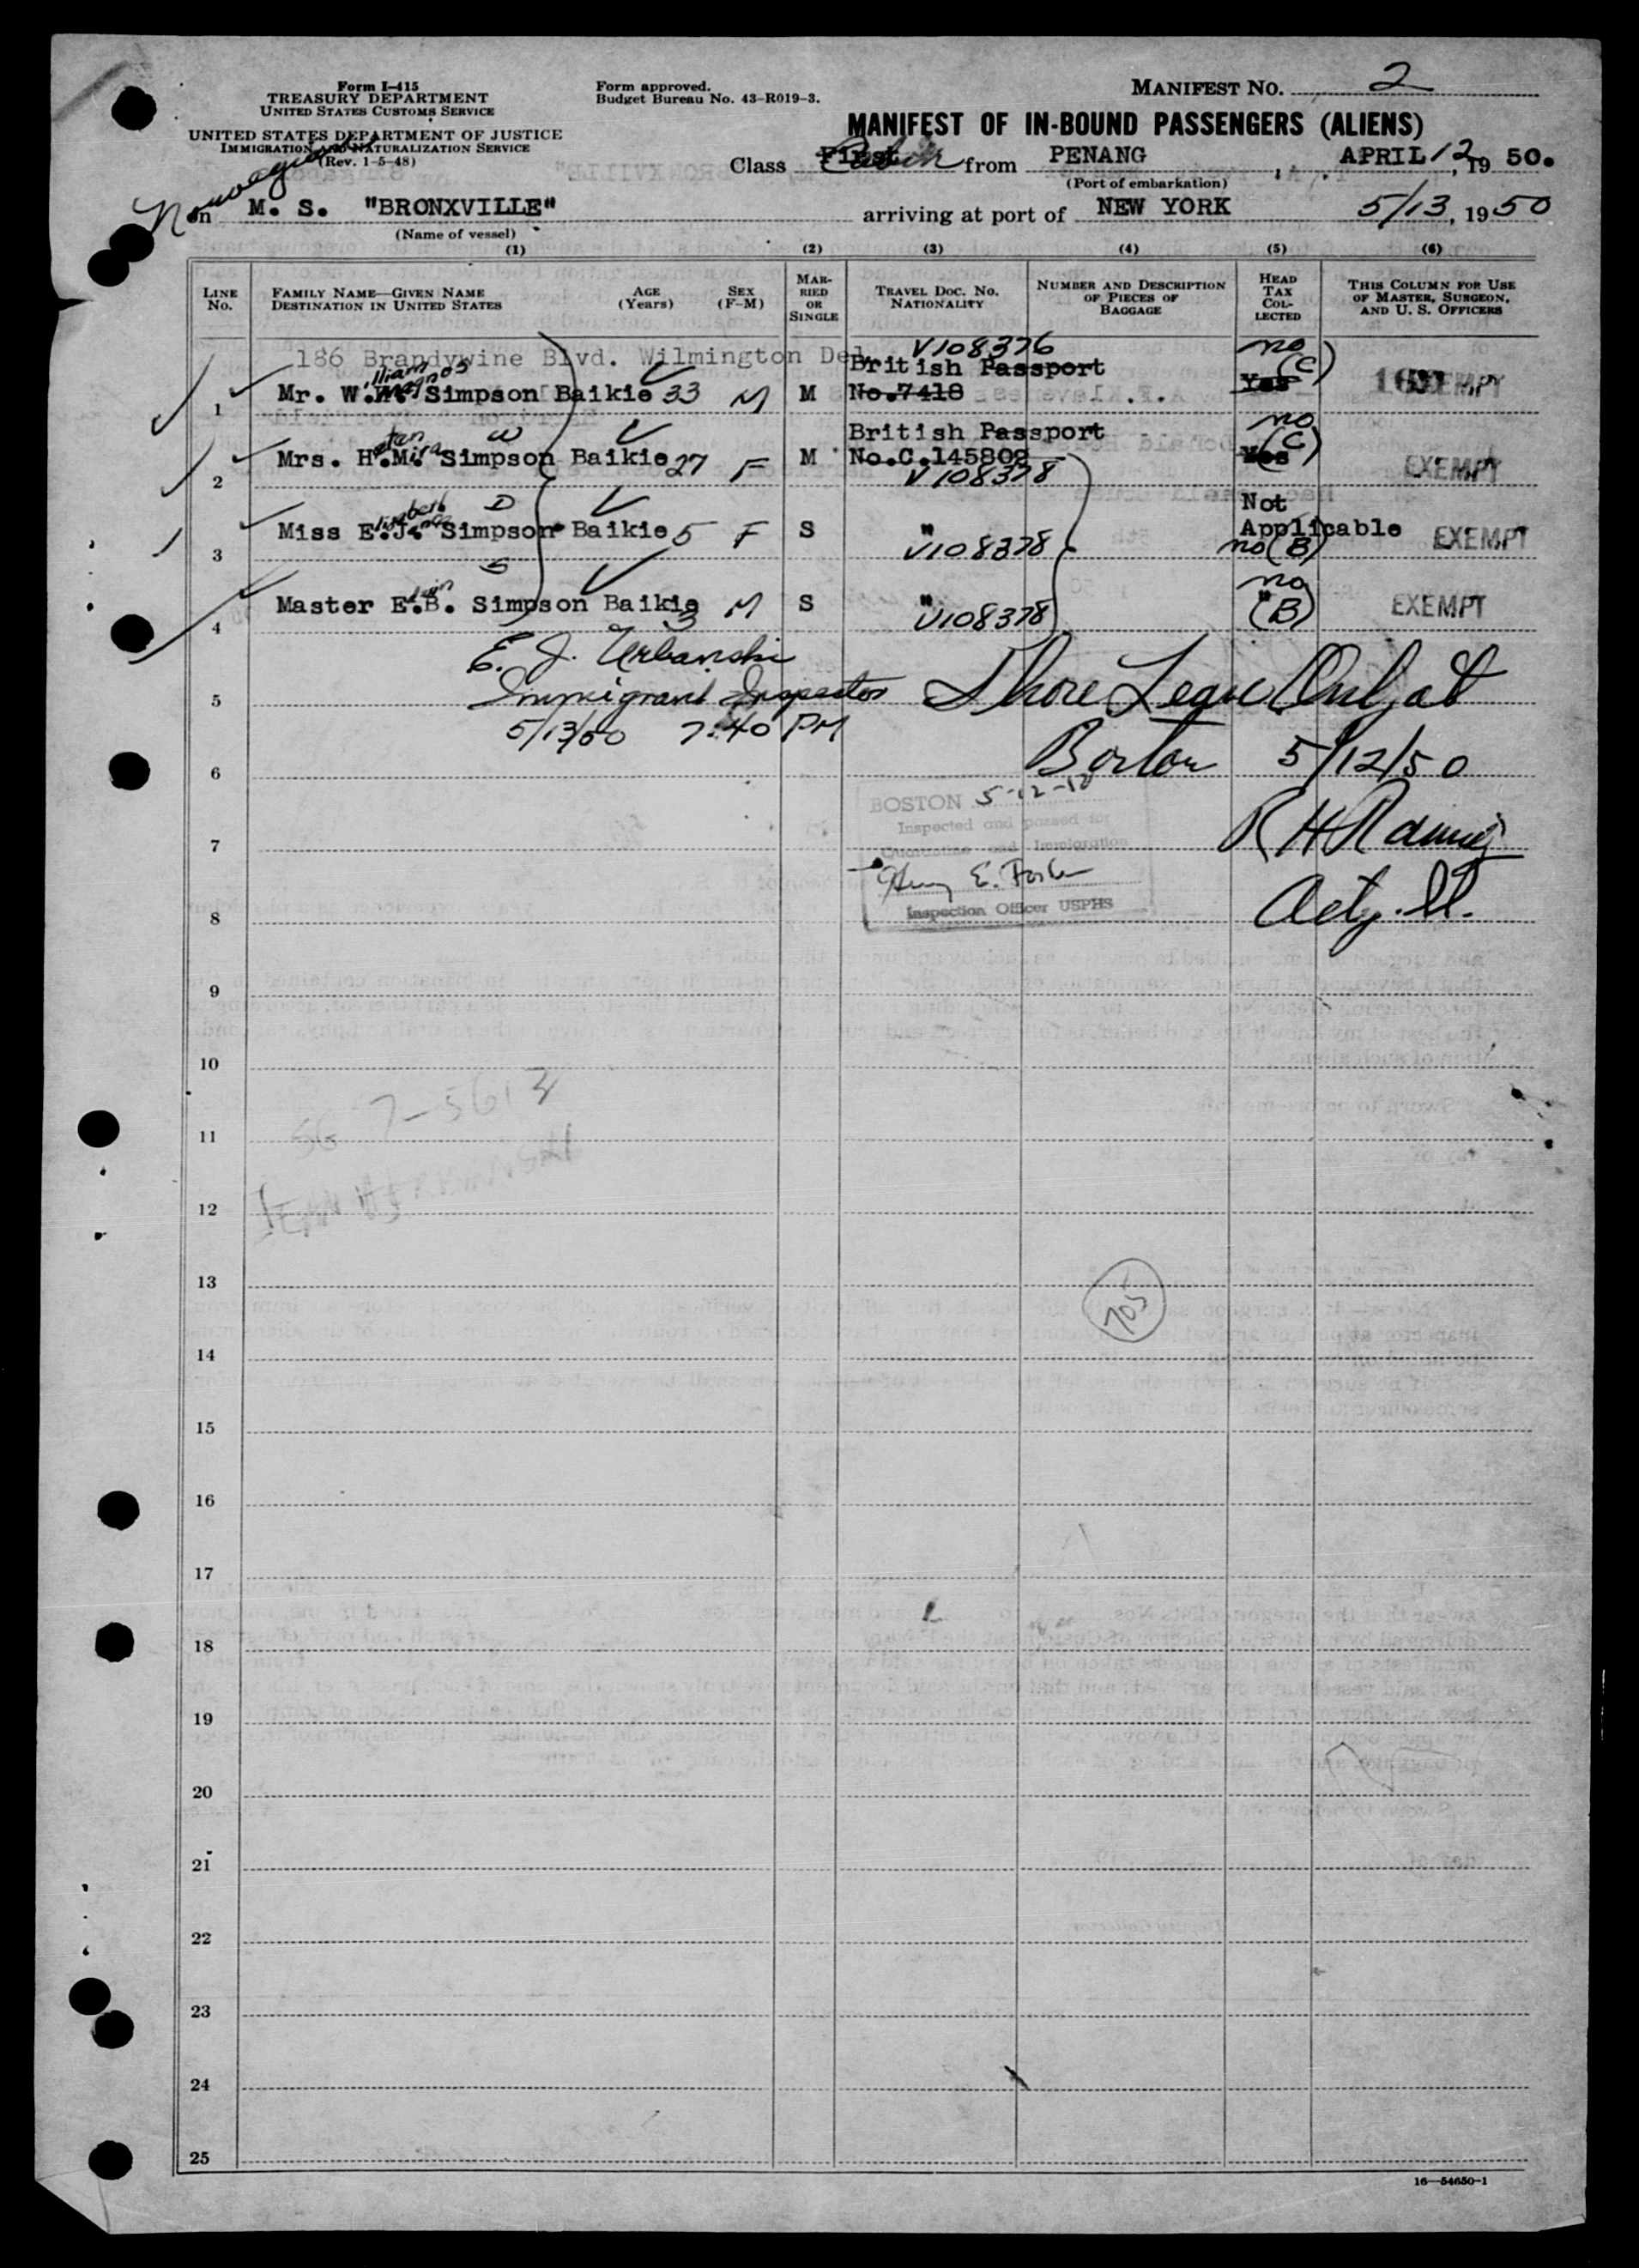 Form I-415
TREASURY DEPARTMENT
UNITED STATES CUSTOMS SERVICE
UNITED STATES DEPARTMENT OF JUSTICE
IMMIGRATION AND NATURALIZATION SERVICE
(Rev. 1-5-48)
Form approved.
Budget Bureau No. 43-R019-3.
MANIFEST NO. 2
MANIFEST OF IN-BOUND PASSENGERS (ALIENS)
Class First Cabin from PENANG, APRIL 12, 19 50.
(Port of embarkation)
Norwegian
on M. S. "BRONXVILLE" arriving at port of NEW YORK 5/13, 1950
(Name of vessel)
(1) (2) (3) (4) (5) (6)
LINE NO.
FAMILY NAME—GIVEN NAME DESTINATION IN UNITED STATES
AGE (Years)
SEX (F-M)
MARRIED OR SINGLE
TRAVEL DOC. NO. NATIONALITY
NUMBER AND DESCRIPTION OF PIECES OF BAGGAGE
HEAD TAX COLLECTED
THIS COLUMN FOR USE OF MASTER, SURGEON, AND U. S. OFFICERS
186 Brandywine Blvd. Wilmington Del. V108376 no
illiam Magnos British Passport (C)
1 Mr. W.M. Simpson Baikie 33 M M No.7418 Yes EXEMPT
W British Passport no
2 Mrs. H.M. Simpson Baikie 27 F M No.C.145802 Yes (C) EXEMPT
V108378
lizabeth D Not
3 Miss E.J. Simpson Baikie 5 F S " Applicable EXEMPT
V108378 no (B)
dwin S no
4 Master E.B. Simpson Baikie 3 M S " " (B) EXEMPT
V108378
E. J. Urbanski
5 Immigrant Inspector Shore Leave Only at
5/13/50 7:40 PM
6 Boston 5/12/50
BOSTON 5-12-50
Inspected and passed for
7 Quarantine and Immigration
Henry E. Foster
8 Inspection Officer USPHS
9
10
7-5613
11
12
13
705
14
15
16
17
18
19
20
21
22
23
24
25
16—54650-1